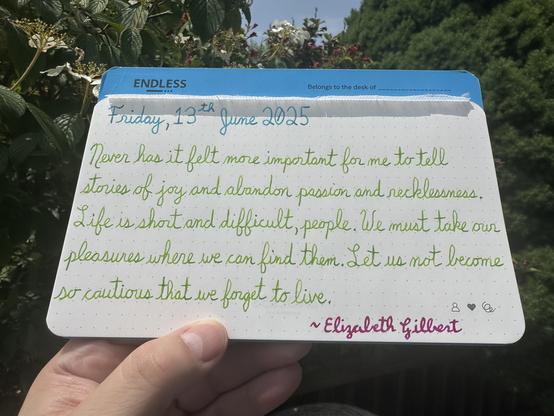 ENDLESS
Belongs to the desk of
Friday, 13th June 2025
Never has it felt more important for me to tell
stories of joy and abandon passion and recklessness.
Life is short and difficult, people. We must take our
pleasures where we can find them. Let us not become
so cautious that we forget to live.
~ Elizabeth Gilbert